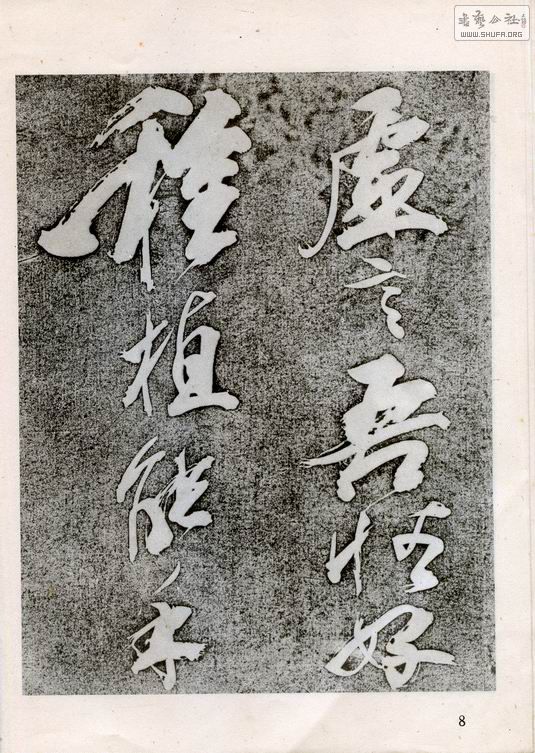 書藝公社
WWW.SHUFA.ORG
虛言吾性好
種植能手
8